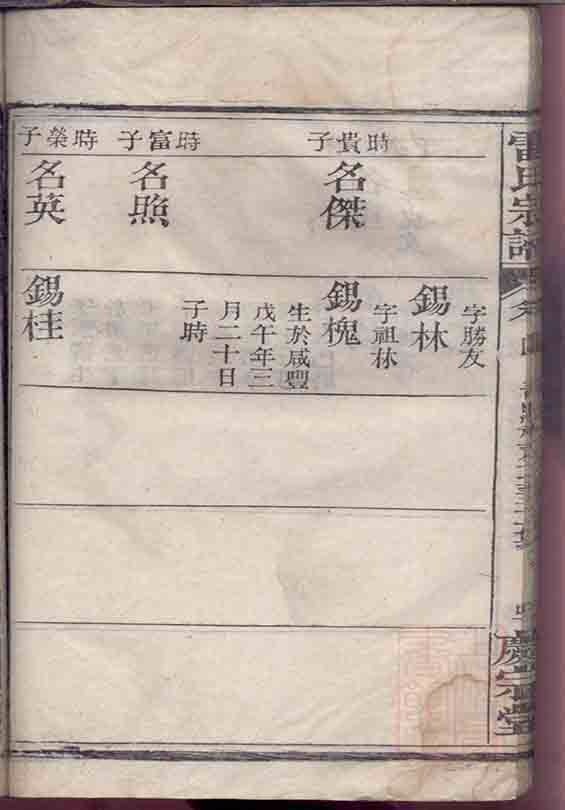 雷氏宗譜
卷四
慶宗堂
時貴子
時富子
時榮子
名傑
名照
名英
字勝友
錫林
字祖林
錫槐
生於咸豐
戊午年三
月二十日
子時
錫桂